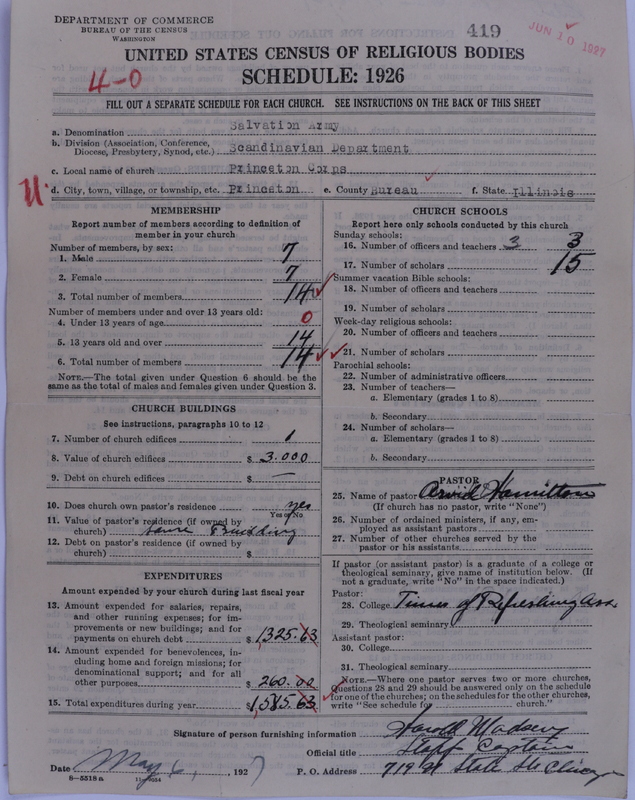 DEPARTMENT OF COMMERCE
BUREAU OF THE CENSUS
WASHINGTON
419
JUN 10 1927
UNITED STATES CENSUS OF RELIGIOUS BODIES
SCHEDULE: 1926
4-0
FILL OUT A SEPARATE SCHEDULE FOR EACH CHURCH. SEE INSTRUCTIONS ON THE BACK OF THIS SHEET
a. Denomination Salvation Army
b. Division (Association, Conference, Diocese, Presbytery, Synod, etc.) Scandinavian Department
c. Local name of church Princeton Corps
d. City, town, village, or township, etc. Princeton e. County Bureau f. State Illinois
MEMBERSHIP
Report number of members according to definition of
member in your church
Number of members, by sex:
1. Male 7
2. Female 7
3. Total number of members 14
Number of members under and over 13 years old:
4. Under 13 years of age 0
5. 13 years old and over 14
6. Total number of members 14
NOTE.—The total given under Question 6 should be
same as the total of males and females given under Question 3.
CHURCH BUILDINGS
See instructions, paragraphs 10 to 12
7. Number of church edifices 1
8. Value of church edifices $ 3.000
9. Debt on church edifices $ —
10. Does church own pastor's residence yes
Yes or No
11. Value of pastor's residence (if owned by
church) Same Building
12. Debt on pastor's residence (if owned by
church) $
EXPENDITURES
Amount expended by your church during last fiscal year
13. Amount expended for salaries, repairs,
and other running expenses; for im-
provements or new buildings; and for
payments on church debt $ 1,325.63
14. Amount expended for benevolences,
including home and foreign missions; for
denominational support; and for all
other purposes $ 260.00
15. Total expenditures during year $ 1,585.63
CHURCH SCHOOLS
Report here only schools conducted by this church
Sunday schools:
16. Number of officers and teachers 3 3
17. Number of scholars 15
Summer vacation Bible schools:
18. Number of officers and teachers
19. Number of scholars
Week-day religious schools:
20. Number of officers and teachers
21. Number of scholars
Parochial schools:
22. Number of administrative officers
23. Number of teachers—
a. Elementary (grades 1 to 8)
b. Secondary
24. Number of scholars—
a. Elementary (grades 1 to 8)
b. Secondary
PASTOR
25. Name of pastor Arvid Hamilton
(If church has no pastor, write "None")
26. Number of ordained ministers, if any, em-
ployed as assistant pastors
27. Number of other churches served by the
pastor or his assistants
If pastor (or assistant pastor) is a graduate of a college or
theological seminary, give name of institution below. (If
not a graduate, write "No" in the space indicated.)
Pastor:
28. College Times of Refreshing
29. Theological seminary
Assistant pastor:
30. College
31. Theological seminary
NOTE.—Where one pastor serves two or more churches,
Questions 28 and 29 should be answered only on the schedule
for one of the churches; on the schedules for the other churches,
write "See schedule for church."
Signature of person furnishing information
Official title Staff Captain
Date May 6, 1927 P. O. Address 719 N State St Chicago
8—5518 a